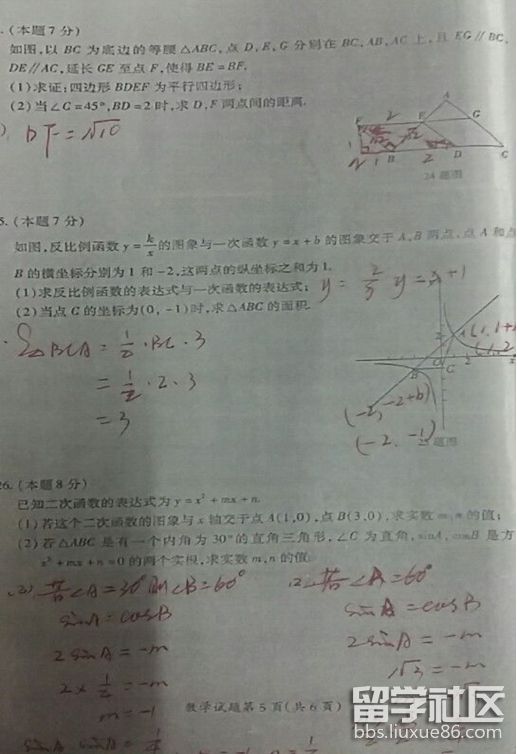 .(本题7分)
如图,以BC为底边的等腰△ABC,点D,E,G分别在BC,AB,AC上,且EG∥BC,
DE∥AC,延长GE至点F,使得BE=BF.
(1)求证:四边形BDEF为平行四边形;
(2)当∠C=45°,BD=2时,求D,F两点间的距离.
DF=√10
A
F 2 E G
1 B 2 D C
24题图
5.(本题7分)
如图,反比例函数y=k/x的图象与一次函数y=x+b的图象交于A,B两点,点A和点
B的横坐标分别为1和-2,这两点的纵坐标之和为1.
(1)求反比例函数的表达式与一次函数的表达式;
y= y=x+1
(2)当点C的坐标为(0,-1)时,求△ABC的面积.
S△BCA=1/2·BC·3
=1/2·2·3
=3
(-2,-2+b)
(-2,-1)
25题图
26.(本题8分)
已知二次函数的表达式为y=x²+mx+n.
(1)若这个二次函数的图象与x轴交于点A(1,0),点B(3,0),求实数m,n的值;
(2)若△ABC是有一个内角为30°的直角三角形,∠C为直角,sinA,cosB是方
x²+mx+n=0的两个实根,求实数m,n的值.
若∠A=30°则∠B=60°
sinA=cosB
2sinA=-m
2×1/2=-m
m=-1
若∠A=60°
sinA=cosB
2sinA=-m
√3=-m
数学试题第5页(共6页)
留学社区
bbs.liuxue86.com